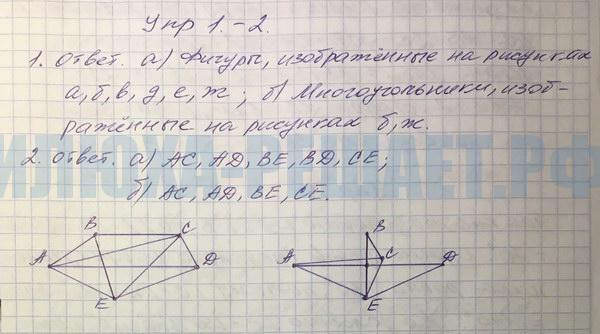 Упр 1.-2.
1. Ответ. а) Фигуры, изображённые на рисунках
а, б, в, д, е, ж; б) Многоугольники, изоб-
ражённые на рисунках б, ж.
МИЛЮХА-РЕШАЕТ.РФ
2. Ответ. а) AC, AD, BE, BD, CE;
б) AC, AD, BE, CE.
B C B
A D A C D
E E